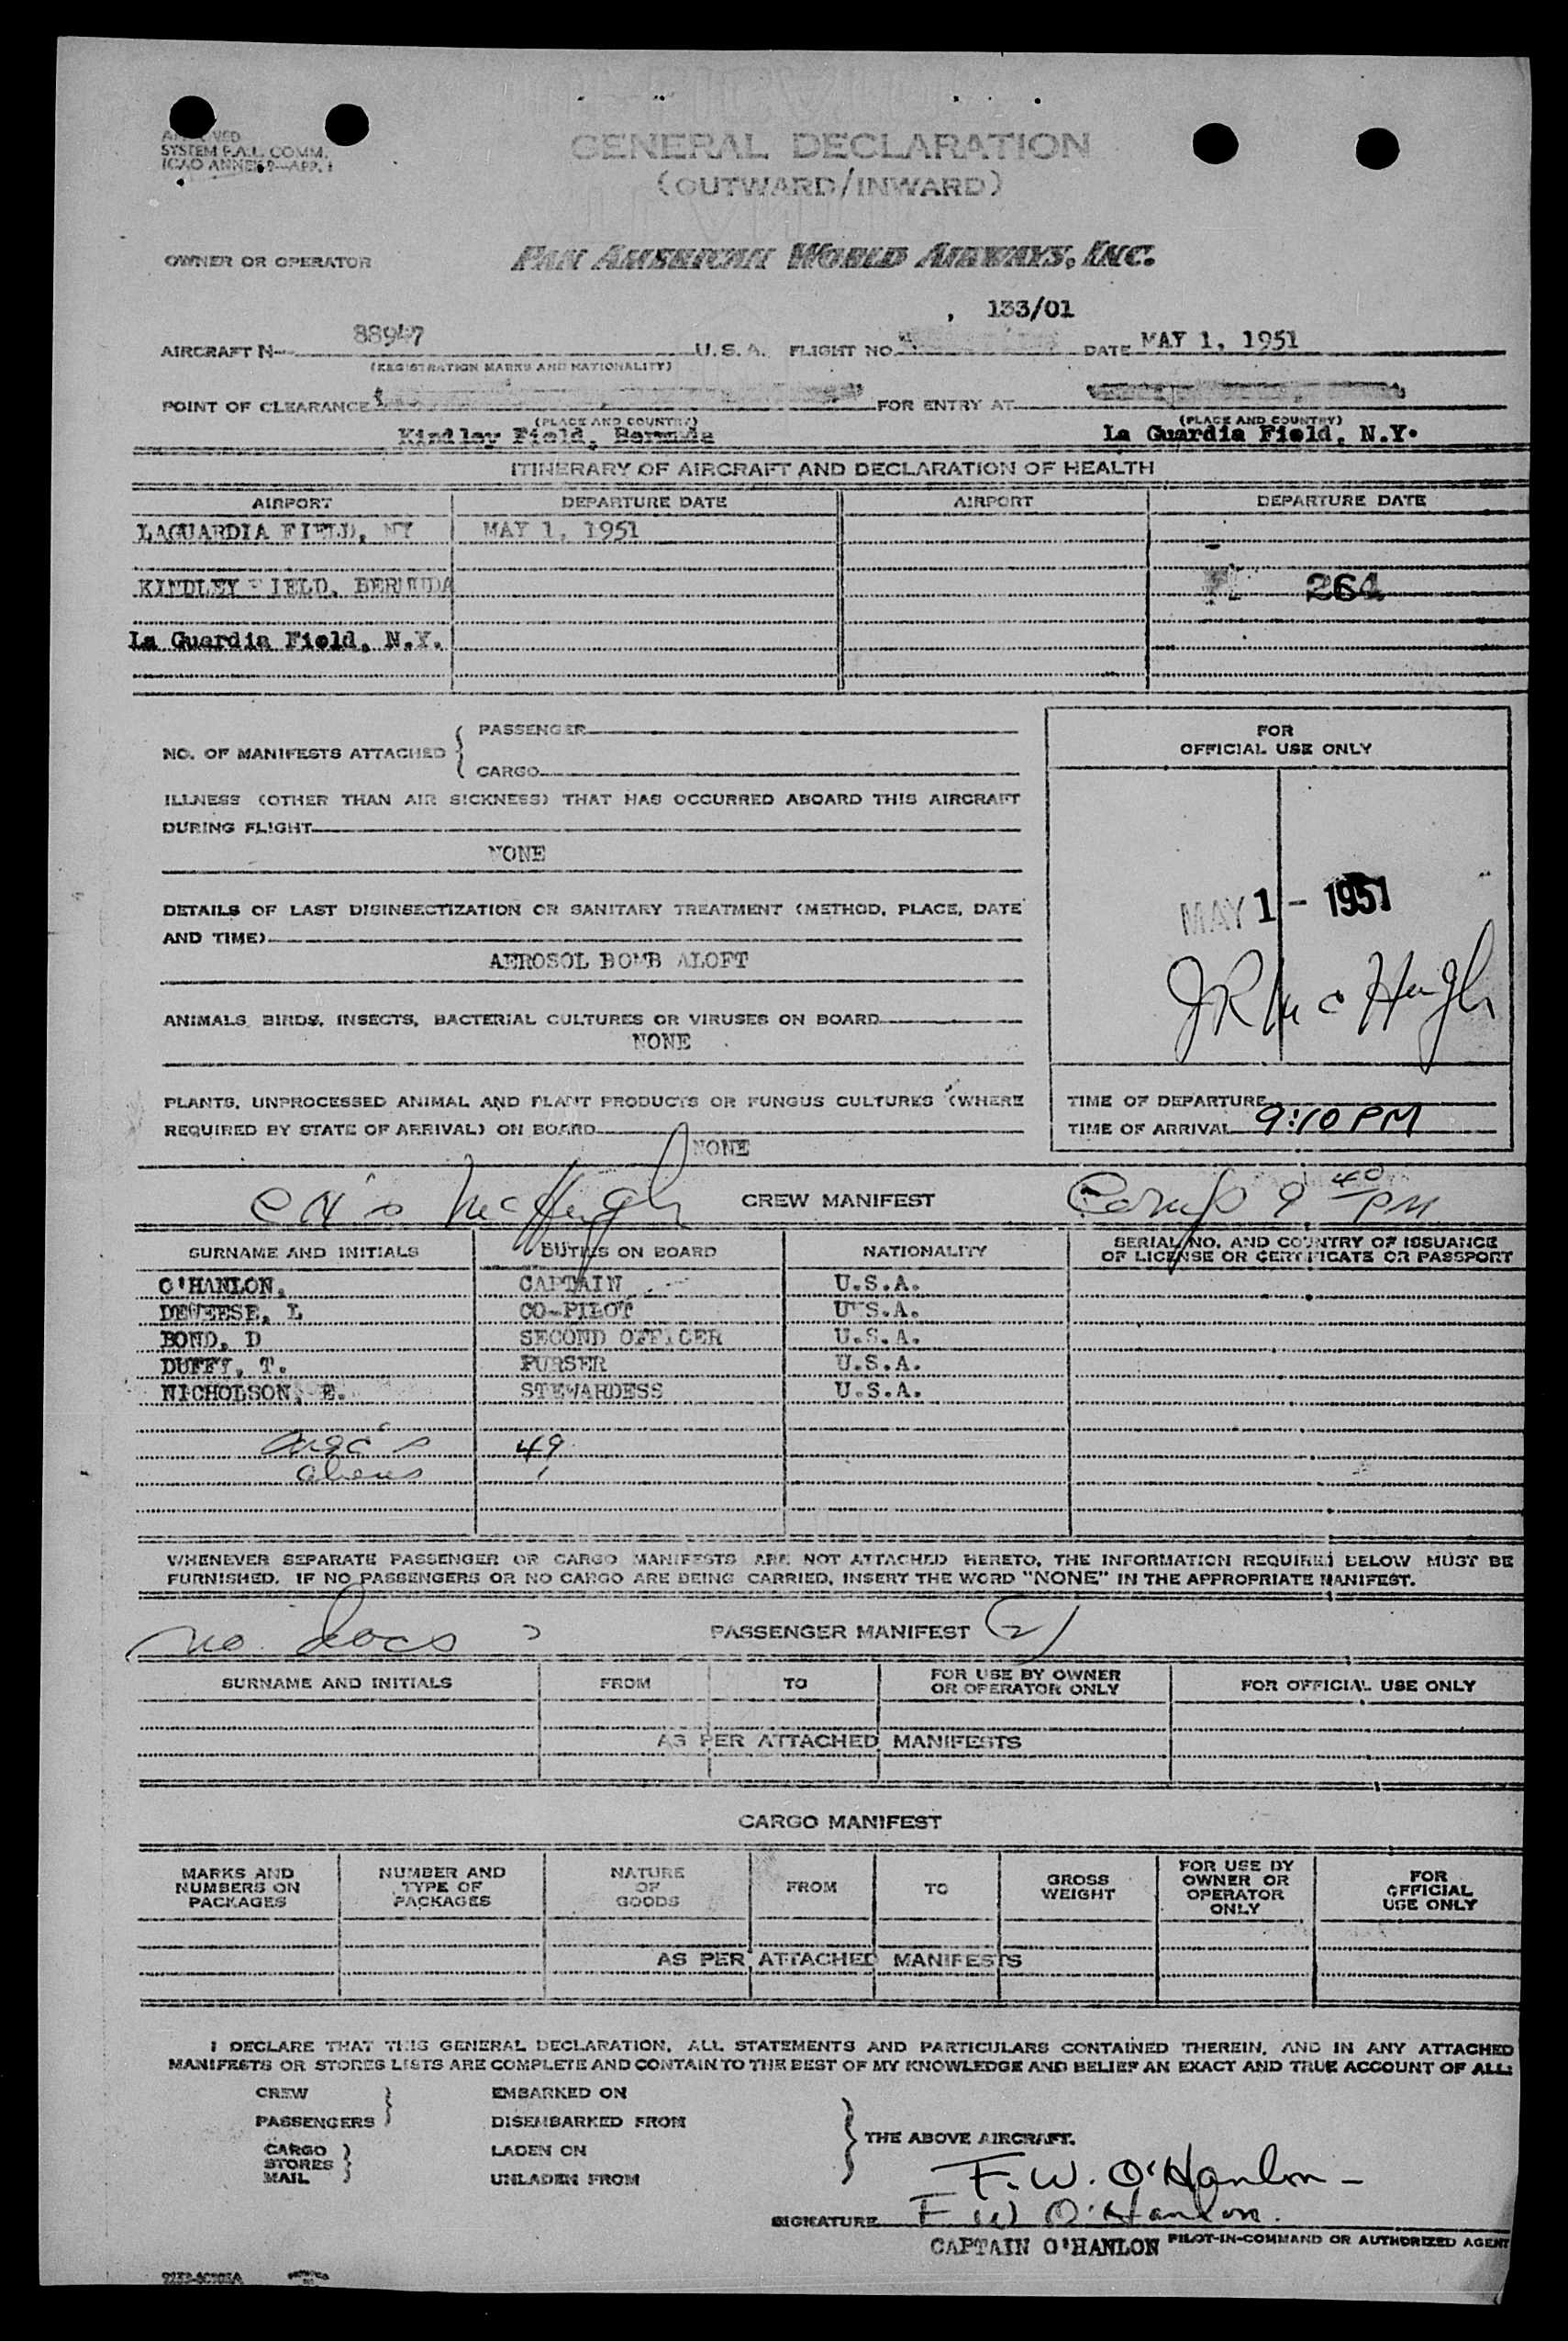 SYSTEM F.A.L. COMM.
ICAO ANNEX 9—APP. 1
GENERAL DECLARATION
(OUTWARD/INWARD)
OWNER OR OPERATOR PAN AMERICAN WORLD AIRWAYS, INC.
, 133/01
AIRCRAFT N- 88947 U.S.A. FLIGHT NO. DATE MAY 1, 1951
(REGISTRATION MARKS AND NATIONALITY)
POINT OF CLEARANCE FOR ENTRY AT
(PLACE AND COUNTRY) (PLACE AND COUNTRY)
Kindley Field, Bermuda La Guardia Field, N.Y.
ITINERARY OF AIRCRAFT AND DECLARATION OF HEALTH
AIRPORT DEPARTURE DATE AIRPORT DEPARTURE DATE
LAGUARDIA FIELD, NY MAY 1, 1951
KINDLEY FIELD, BERMUDA 264
La Guardia Field, N.Y.
NO. OF MANIFESTS ATTACHED { PASSENGER
CARGO
FOR
OFFICIAL USE ONLY
ILLNESS (OTHER THAN AIR SICKNESS) THAT HAS OCCURRED ABOARD THIS AIRCRAFT
DURING FLIGHT
NONE
DETAILS OF LAST DISINSECTIZATION OR SANITARY TREATMENT (METHOD, PLACE, DATE
AND TIME)
AEROSOL BOMB ALOFT
MAY 1 - 1951
JR McHugh
ANIMALS, BIRDS, INSECTS, BACTERIAL CULTURES OR VIRUSES ON BOARD
NONE
PLANTS, UNPROCESSED ANIMAL AND PLANT PRODUCTS OR FUNGUS CULTURES (WHERE
REQUIRED BY STATE OF ARRIVAL) ON BOARD
NONE
TIME OF DEPARTURE
TIME OF ARRIVAL 9:10 PM
McHugh CREW MANIFEST Comp 9 40 PM
SURNAME AND INITIALS DUTIES ON BOARD NATIONALITY SERIAL NO. AND COUNTRY OF ISSUANCE
OF LICENSE OR CERTIFICATE OR PASSPORT
O'HANLON, CAPTAIN U.S.A.
DEWEESE, L CO-PILOT U.S.A.
BOND, D SECOND OFFICER U.S.A.
DUFFY, T. PURSER U.S.A.
NICHOLSON, E. STEWARDESS U.S.A.
49
aliens 1
WHENEVER SEPARATE PASSENGER OR CARGO MANIFESTS ARE NOT ATTACHED HERETO, THE INFORMATION REQUIRED BELOW MUST BE
FURNISHED. IF NO PASSENGERS OR NO CARGO ARE BEING CARRIED, INSERT THE WORD "NONE" IN THE APPROPRIATE MANIFEST.
no docs PASSENGER MANIFEST (2)
SURNAME AND INITIALS FROM TO FOR USE BY OWNER
OR OPERATOR ONLY FOR OFFICIAL USE ONLY
AS PER ATTACHED MANIFESTS
CARGO MANIFEST
MARKS AND
NUMBERS ON
PACKAGES
NUMBER AND
TYPE OF
PACKAGES
NATURE
OF
GOODS
FROM
TO
GROSS
WEIGHT
FOR USE BY
OWNER OR
OPERATOR
ONLY
FOR
OFFICIAL
USE ONLY
AS PER ATTACHED MANIFESTS
I DECLARE THAT THIS GENERAL DECLARATION, ALL STATEMENTS AND PARTICULARS CONTAINED THEREIN, AND IN ANY ATTACHED
MANIFESTS OR STORES LISTS ARE COMPLETE AND CONTAIN TO THE BEST OF MY KNOWLEDGE AND BELIEF AN EXACT AND TRUE ACCOUNT OF ALL:
CREW EMBARKED ON
PASSENGERS DISEMBARKED FROM
CARGO LADEN ON
STORES
MAIL UNLADEN FROM
THE ABOVE AIRCRAFT.
F. W. O'Hanlon
SIGNATURE F W O'Hanlon.
CAPTAIN O'HANLON PILOT-IN-COMMAND OR AUTHORIZED AGENT